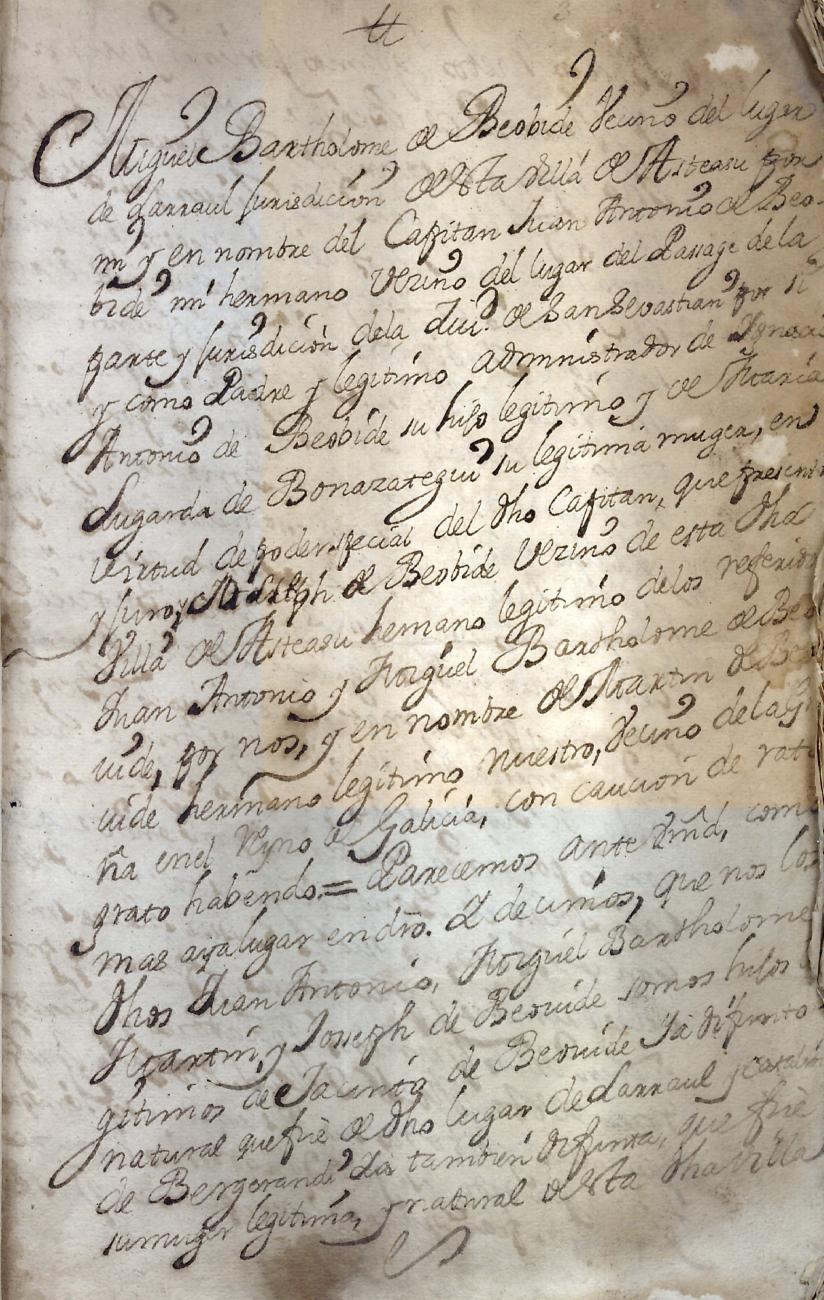 Miguel Bartholome de Beobide Vecino del lugar
de Larraul Jurisdicción de esta villa de Asteasu por
mi y en nombre del Capitan Juan Antonio de Beo-
bide mi hermano Vezino del lugar del Passage de la
parte y Jurisdicción de la Ciud. de San Sevastian por si
y como Padre y legitimo administrador de Ygnacio
Antonio de Beobide su hijo legitimo y de Maria
Lugarda de Bonazategui su legitima muger, en
virtud de poder special del dho Capitan, que presento
y Juro, y Joseph de Beobide Vezino de esta dha
Villa de Asteasu hemano legitimo de los referidos
Juan Antonio y Miguel Bartholome de Beo
uide, por nos, y en nombre de Martin de Beo
uide hermano legitimo nuestro, Vecino de la
ña en el Reyno de Galicia, con caucion de rato
grato habendo = Parecemos ante Vmd, como
mas aya lugar en dro. Y decimos, que nos los
dhos Juan Antonio, Miguel Bartholome
Martin, y Joseph de Beouide somos hijos le
gitimos de Jacinto de Beouide ya difunto
natural que fue de dho lugar de Larraul y Catalina
de Bergarandi Ya tambien difunta, que fue
su muger legitima, y natural de esta dha villa